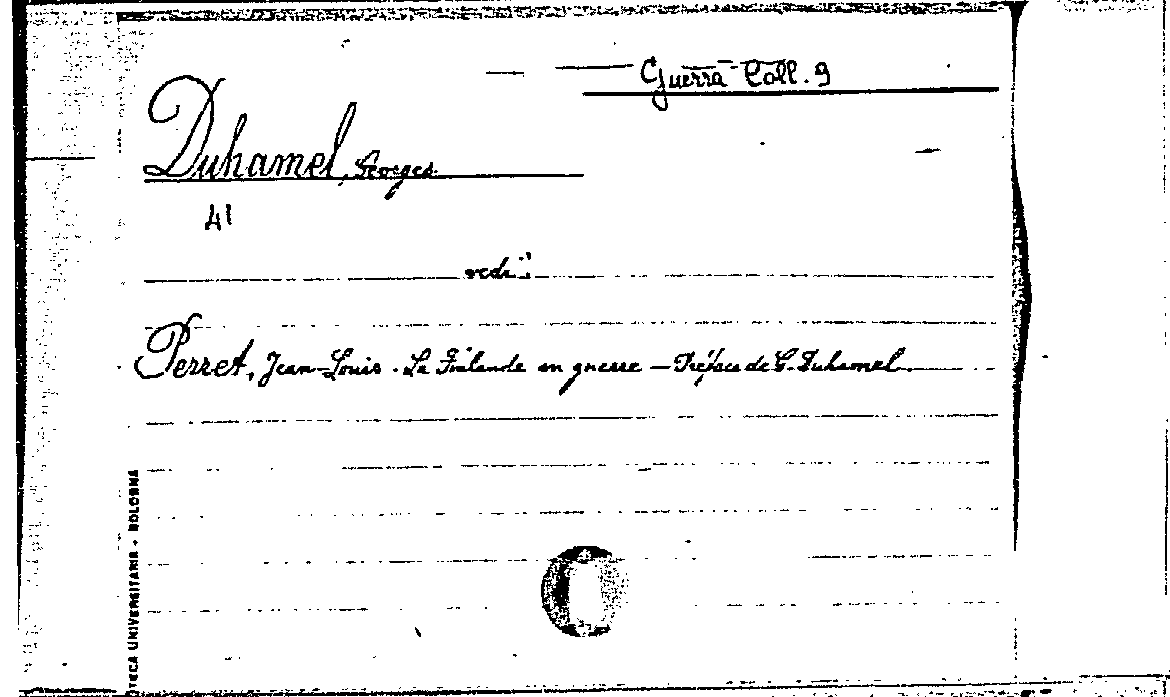 Guerra Coll. 9
Duhamel, Georges
41
vedi:
Perret, Jean-Louis - La Finlande en guerre — Préface de G. Duhamel.
OTECA UNIVERSITARIA - BOLOGNA